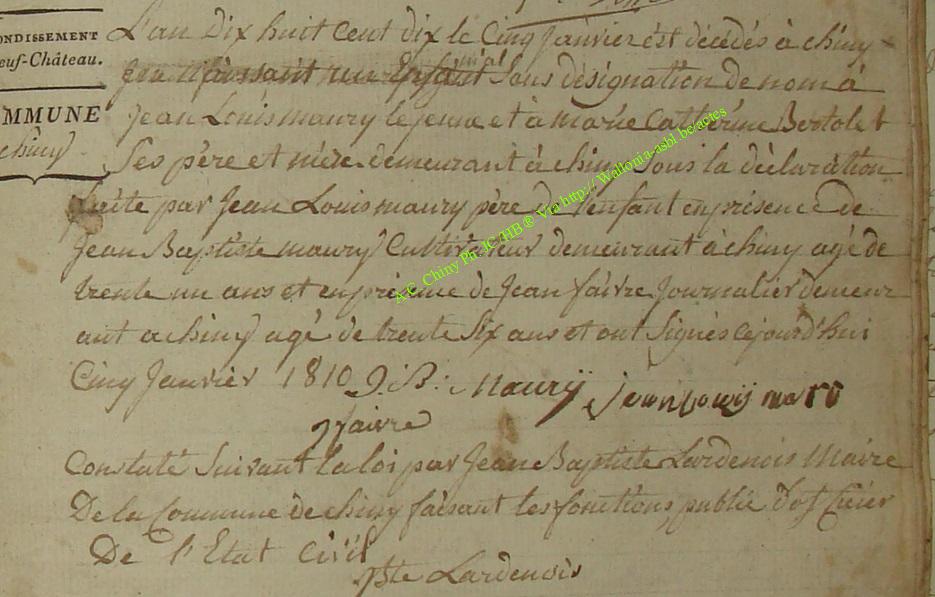 ONDISSEMENT
euf-Château.
MMUNE
chiny
L'an Dix huit Cent dix le Cinq Janvier est décédés à chiny
un Enfant Sous désignation de nom à
Jean Louis maury le jeune et à marie Catherine Bertolet
Ses père et mère demeurant à chiny Sous la déclaration
faite par Jean Louis maury père de l'enfant en présence de
Jean Baptiste maury Cultivateur demeurant à chiny agé de
trente un ans et en présence de Jean faivre Journalier demeur
ant a chiny agé de trente Six ans et ont Signés cejourd'hui
Cinq Janvier 1810 J. B. Maurÿ jean louis
J faivre
Constaté Suivant la loi par Jean Baptiste Lardenois Maire
De la Commune de chiny faisant les fonctions public d'officier
De l'Etat Civil
JBte Lardenois
A.C. Chiny Ph. JC HB ® Via http:// Wallonia-asbl.be/actes